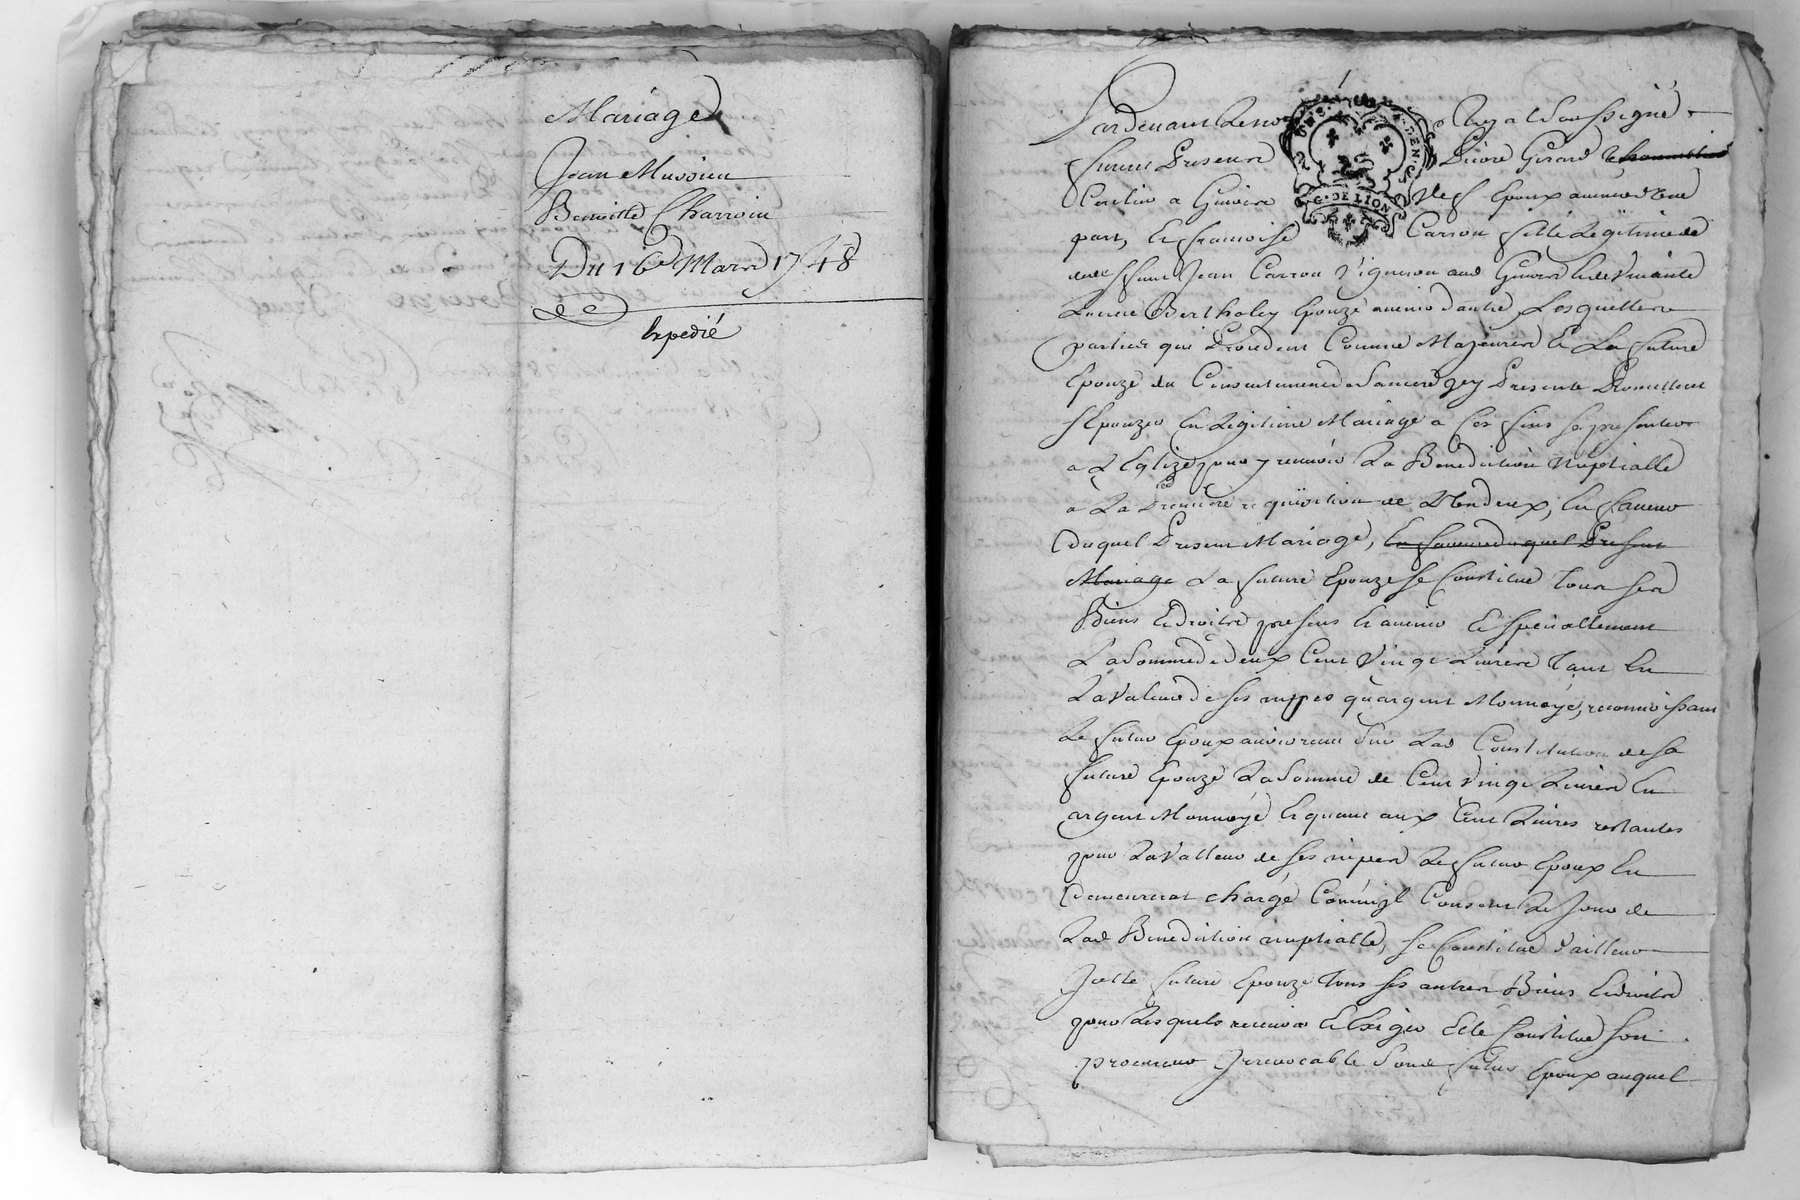 Mariage
Jean Mussieu
Benoitte Charvin
Du 16e Mars 1748
Expedié
Pardevant Le no re Royal Soussigné
furent Presens Pierre Girard
a Givors d'une
part, et francoise Carron fille Legitime de
deff Jean Carron Vigneron aud Givors et de vivante
Bertholey Epouze avenir d'autre Lesquelles
parties qui Procedent Comme Majeures Et La future
Epouze du Consentement de Sa mere icy Presente Promettent
s'Epouzer En Legitime Mariage a Ces fins se presenter
a L'Eglize pour y recevoir La Benediction Nuptialle
a La Premiere requisition de L'un deux, En faveur
Duquel Present Mariage, En faveur duquel Present
Mariage La future Epouze se Constitue tous ses
Biens Et droits presens Et avenir Et speciallement
La Somme de deux Cent Vingt Livres tant En
La Valeur de ses nippes qu'argent Monnoyé, reconnoissant
Le futur Epoux avoir recu sur Lad Constitution de sa
future Epouze La Somme de Cent Vingt Livres En
argent Monnoyé Et quant aux Cent Livres restantes
pour La Valleur de ses nippes Le futur Epoux En
Demeurerat chargé Comme il Consent Le Jour de
Lad Benediction nuptialle, se Constitue d'ailleur
Icelle future Epouze tous ses autres Biens Et droits
pour Lesquels recevoir Et Exiger Elle Constitue son
procureur Irrevocable Sond futur Epoux auquel
G. DE LION